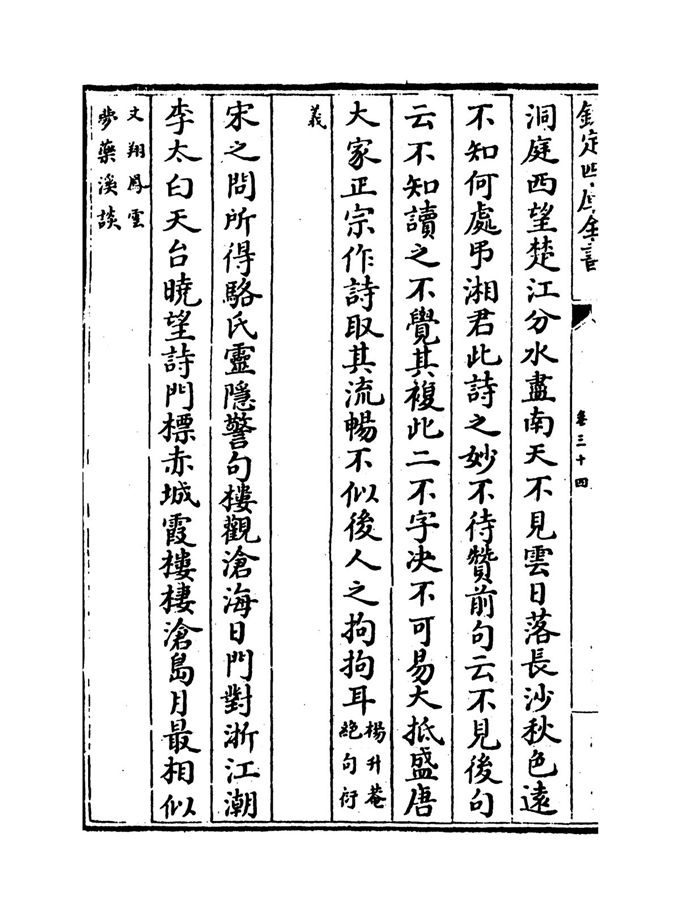 欽定四庫全書
卷三十四
洞庭西望楚江分水盡南天不見雲日落長沙秋色遠
不知何處弔湘君此詩之妙不待贊前句云不見後句
云不知讀之不覺其複此二不字决不可易大抵盛唐
大家正宗作詩取其流暢不似後人之拘拘耳楊升菴
絶句衍
義
宋之問所得駱氏靈隱警句樓觀滄海日門對浙江潮
李太白天台曉望詩門標赤城霞樓棲滄島月最相似
文翔鳳雲
夢藥溪談